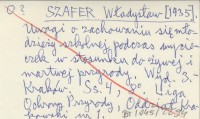 Q? SZAFER Władysław [1935].
Uwagi o zachowaniu się mło-
dzieży szkolnej podczas wyciec-
zek w stosunku do żywej i
martwej przyrody. Wyd. 3.
Kraków, Ss. 4, 8°. Liga
Ochrony Przyrody, Oddział Kra-
kowski nr 1.